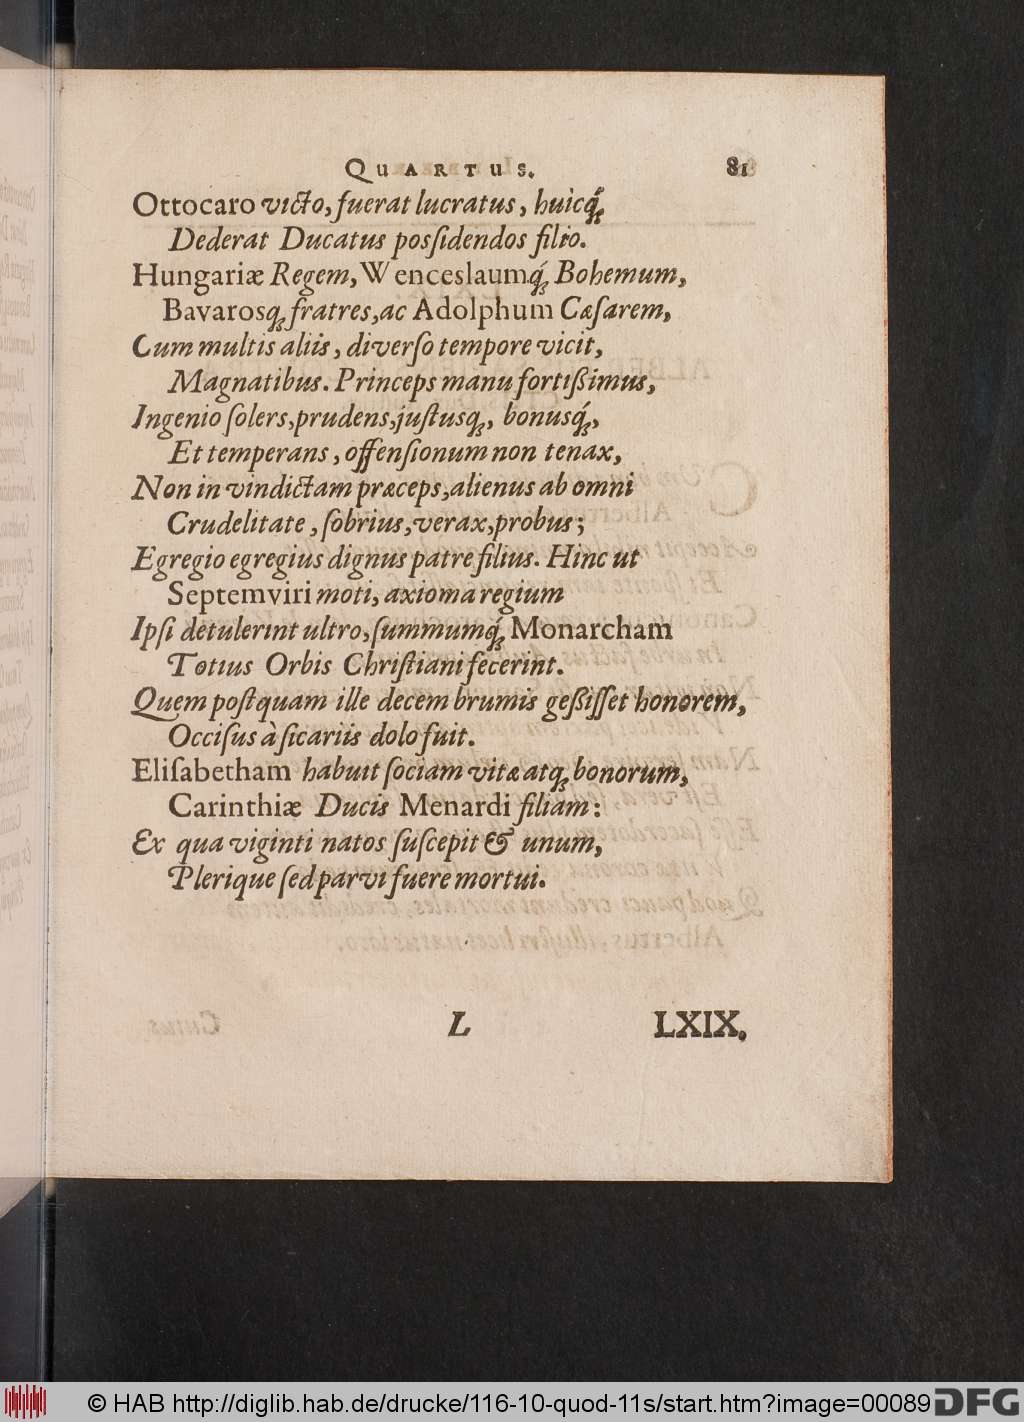 QUARTUS. 81
Ottocaro victo, fuerat lucratus, huicq́ꝫ
Dederat Ducatus posſidendos filio.
Hungariæ Regem, Wenceslaumq́ꝫ Bohemum,
Bavarosqꝫ fratres, ac Adolphum Cæſarem,
Cum multis aliis, diverſo tempore vicit,
Magnatibus. Princeps manu fortißimus,
Ingenio ſolers, prudens, juſtusqꝫ, bonusq́ꝫ,
Et temperans, offenſionum non tenax,
Non in vindictam præceps, alienus ab omni
Crudelitate, ſobrius, verax, probus;
Egregio egregius dignus patre filius. Hinc ut
Septemviri moti, axioma regium
Ipſi detulerint ultro, ſummumq́ꝫ Monarcham
Totius Orbis Chriſtiani fecerint.
Quem poſtquam ille decem brumis geßiſſet honorem,
Occiſus à ſicariis dolo fuit.
Eliſabetham habuit ſociam vitæ atqꝫ bonorum,
Carinthiæ Ducis Menardi filiam:
Ex qua viginti natos ſuſcepit & unum,
Plerique ſed parvi fuere mortui.
L LXIX.
© HAB http://diglib.hab.de/drucke/116-10-quod-11s/start.htm?image=00089 DFG